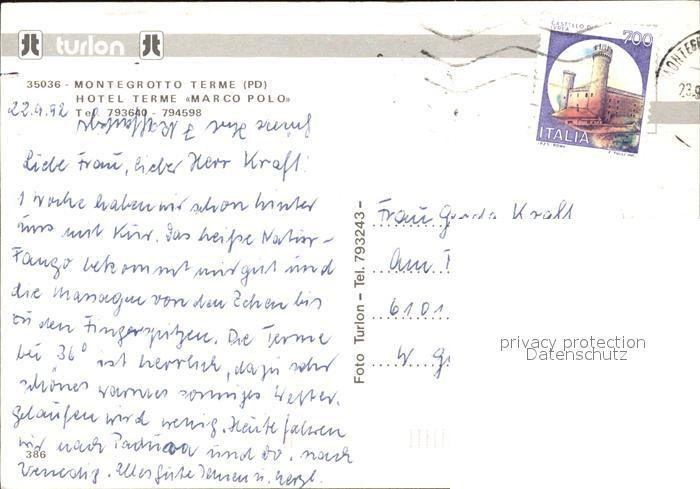 turlon
35036 - MONTEGROTTO TERME (PD)
HOTEL TERME «MARCO POLO»
Tel. 793640 - 794598
22.9.92
Liebe Frau, lieber Herr Kraft!
1 Woche haben wir schon hinter
uns mit Kur. Das heiße Natur-
Fango bekommt mir gut und
die Massagen von den Zehen bis
zu den Fingerspitzen. Die Terme
bei 36° ist herrlich, dazu sehr
schönes warmes sonniges Wetter.
Gelaufen wird wenig. Heute fahren
wir nach Padua und Do. nach
Venedig. Alles Gute Ihnen u. herzl.
386
Foto Turlon - Tel. 793243 -
CASTELLO DI
IVREA
700
ITALIA
MONTEGR
23.9
Frau Kraft
Am
6101
W. G
privacy protection
Datenschutz